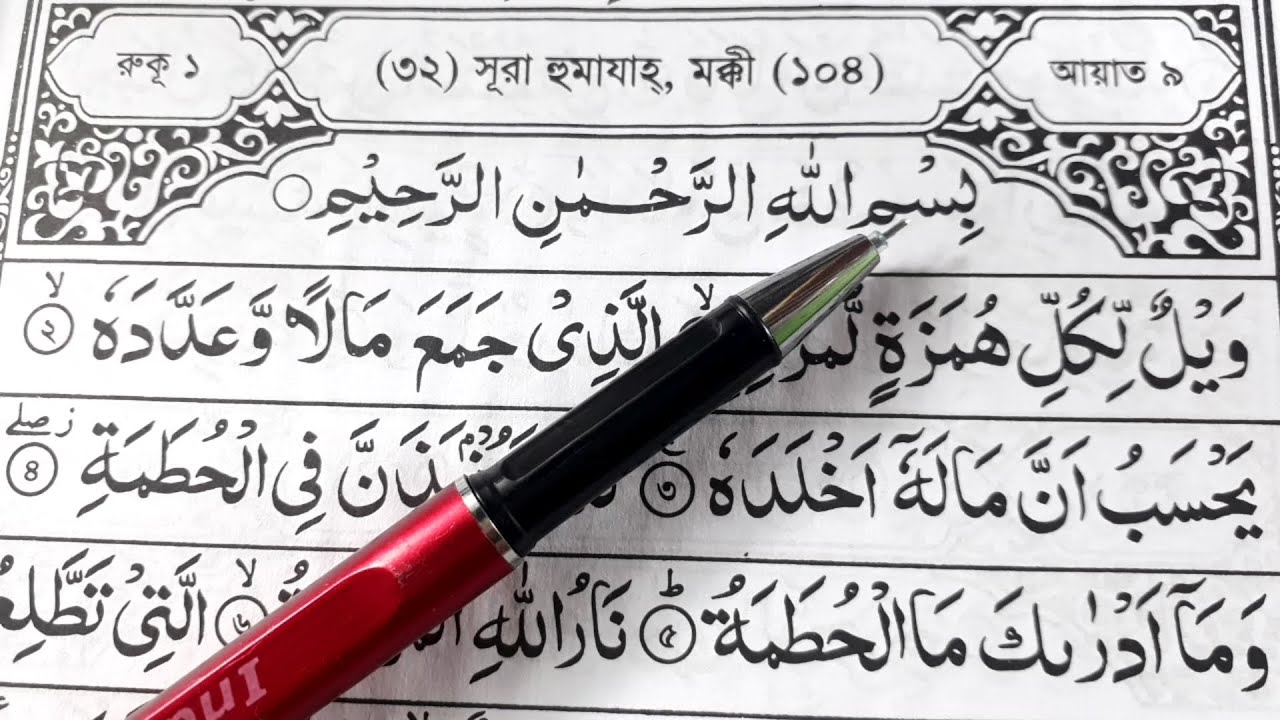 রুকূ ১ (৩২) সূরা হুমাযাহ্, মক্কী (১০৪) আয়াত ৯
بِسْمِ اللّٰهِ الرَّحْمٰنِ الرَّحِيْمِ
وَيْلٌ لِّكُلِّ هُمَزَةٍ الَّذِىْ جَمَعَ مَالًا وَّعَدَّدَهٗ ২
يَحْسَبُ اَنَّ مَالَهٗٓ اَخْلَدَهٗ ৩ فِى الْحُطَمَةِ ৪
وَمَآ اَدْرٰىكَ مَا الْحُطَمَةُ ৫ نَارُ اللّٰهِ ৬ الَّتِىْ تَطَّلِعُ